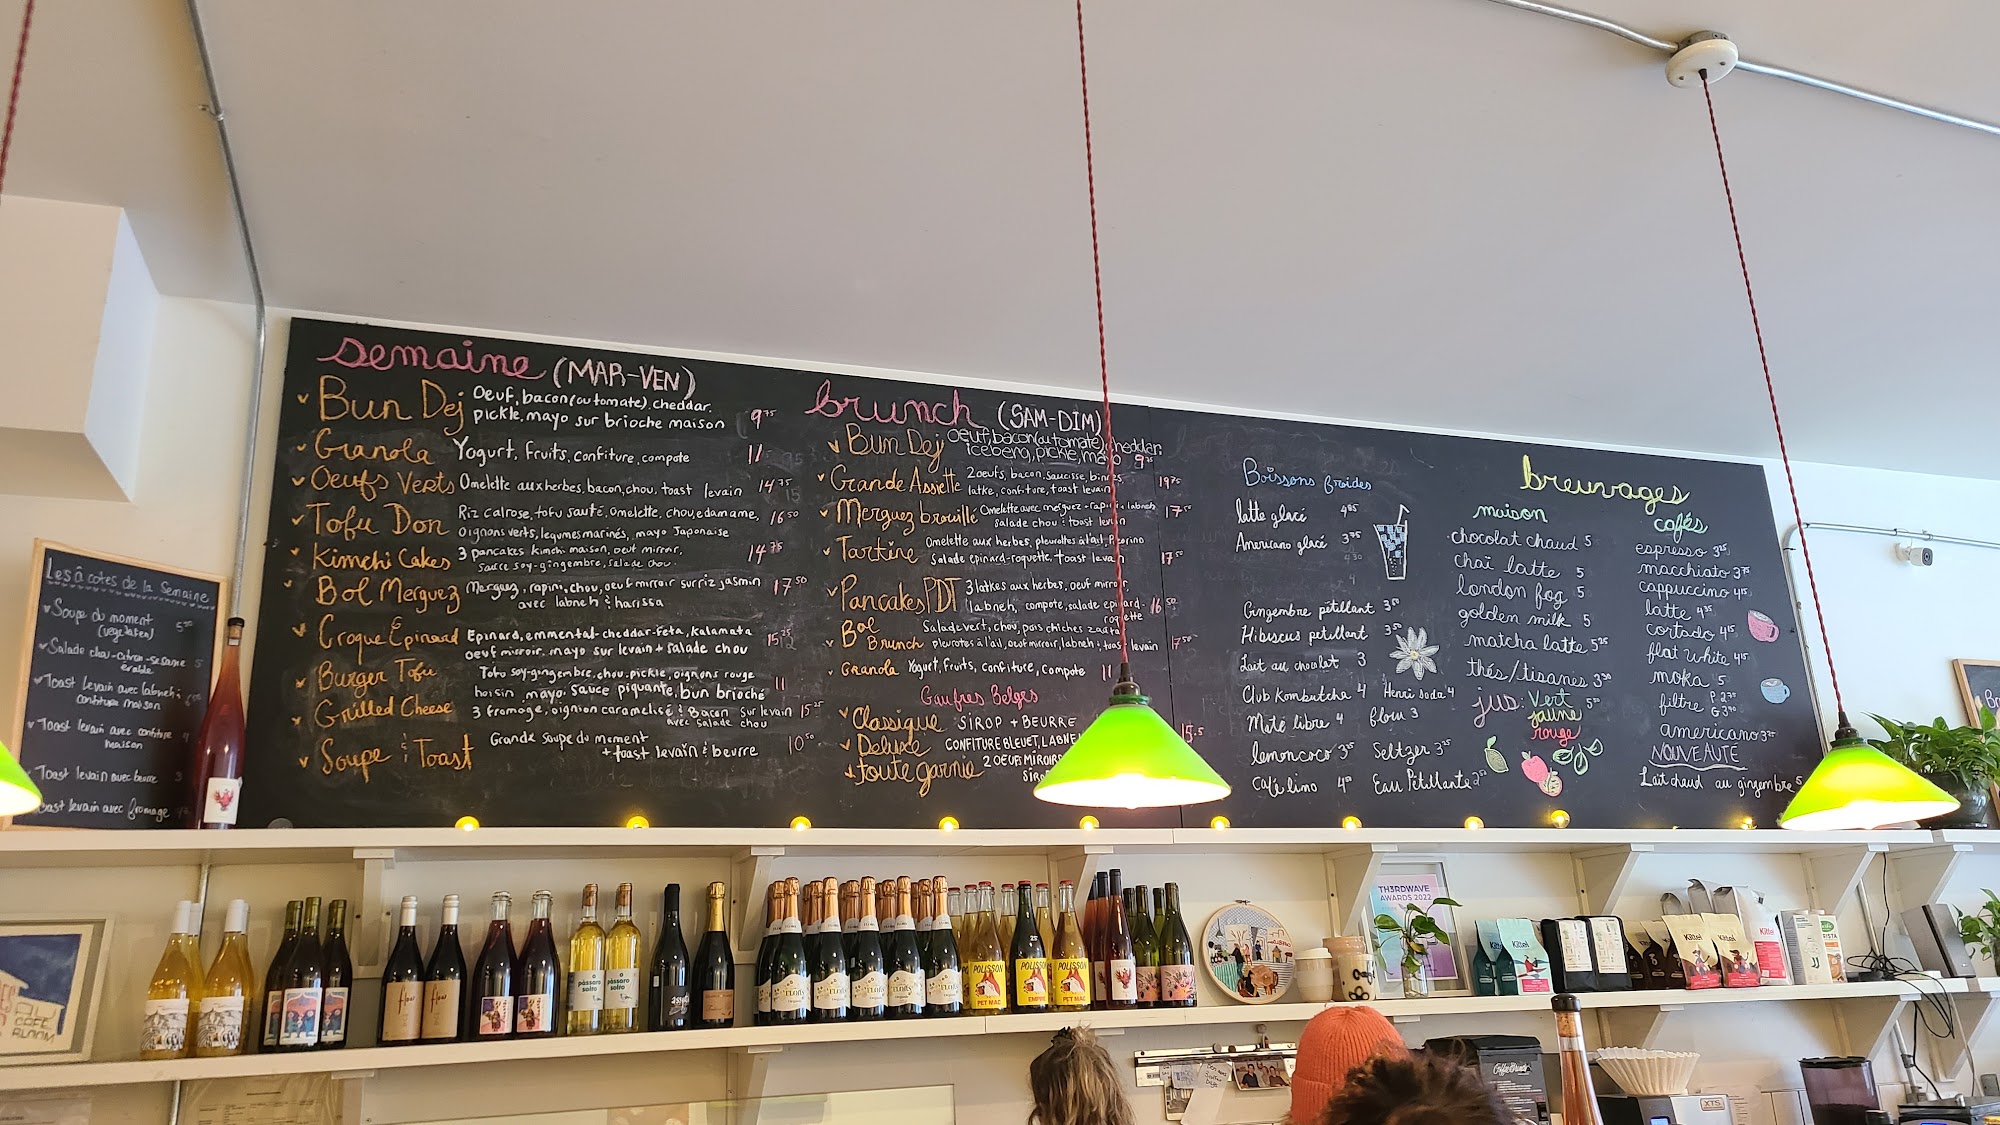 semaine (MAR-VEN)
Bun Dej Oeuf, bacon (ou tomate), cheddar,
pickle, mayo sur brioche maison 9 75
Granola Yogurt, fruits, confiture, compote 11
Oeufs Verts Omelette aux herbes, bacon, chou, toast levain 14 75
Tofu Don Riz calrose, tofu sauté, omelette, chou, edamame, 16 50
Oignons verts, legumes marinés, mayo Japonaise
Kimchi Cakes 3 pancakes kimchi maison, oeuf mirroir, 14 75
sauce soy-gingembre, salade chou.
Bol Merguez Merguez, rapini, chou, oeuf mirroir sur riz jasmin 17 50
avec labneh & harissa
Croque Épinard Epinard, emmental-cheddar-feta, kalamata 15 25
oeuf mirroir, mayo sur levain + salade chou
Burger Tofu Tofu soy-gingembre, chou, pickle, oignons rouge
hoisin, mayo, sauce piquante, bun brioché 11
Grilled Cheese 3 fromage, oignion caramelisé & Bacon sur levain 15 25
avec salade chou
Soupe & Toast Grande soupe du moment
+ toast levain & beurre 10 50
brunch (SAM-DIM)
Bun Dej oeuf, bacon (ou tomate), cheddar
iceberg, pickle, mayo 9 75
Grande Assiette 2 oeufs, bacon, saucisse, bines, 19 75
latke, confiture, toast levain
Merguez brouillé Omelette avec merguez-rapini & labneh 17 50
salade chou & toast levain
Tartine Omelette aux herbes, pleurottes à l'ail, Pecorino
Salade epinard-roquette, toast levain 17 50
Pancakes PDT 3 latkes aux herbes, oeuf mirroir
labneh, compote, salade epinard-roquette 16 50
Bol Brunch Salade vert, chou, pois chiches zaatar
pleurotes à l'ail, oeuf mirroir, labneh & toast levain 17 50
Granola Yogurt, fruits, confiture, compote 11
Gaufres Belges
Classique SIROP + BEURRE
Deluxe CONFITURE BLEUET, LABNE
toute garnie 2 OEUF MIROIR
Boissons froides
latte glacé 4 85
Americano glacé 3 75
Gingembre pétillant 3 50
Hibiscus petillant 3 50
Lait au chocolat 3
Club Kombutcha 4 Henri soda 4
Maté libre 4
lemoncoco 3 25 Seltzer 3 25
Café lino Eau Pétillante 2 50
breuvages
maison
chocolat chaud 5
chaï latte 5
london fog 5
golden milk 5
matcha latte 5 25
thés/tisanes 3 50
jus: Vert
jaune
rouge
cafés
espresso 3 25
macchiato 3 75
cappuccino 4 25
latte 4 35
cortado 4 25
flat white 4 25
moka 5
filtre P 2 75
G 3 90
americano 3 25
NOUVEAUTÉ
Lait chaud au gingembre 5
Les à cotes de la Semaine
Soupe du moment
(vegetarien) 5 50
Salade chou-citron-sesame 5
érable
Toast levain avec labneh &
confiture maison
Toast levain avec confiture 4
maison
Toast levain avec beurre 3
Toast levain avec fromage
pássaro
solto
pássaro
solto
POLISSON
PET MAC
EMPIRE
POLISSON
PET MAC
TH3RDWAVE
AWARDS 2022
Kittel
Kittel
Kittel
Kittel
XTS